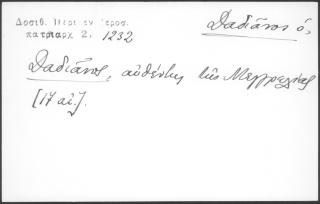 Δοσιθ. Περι εν Ιεροσ.
πατριαρχ 2, 1232
Δαδιᾶνος ὁ,
Δαδιᾶνος, αὐθέντης τῆς Μεγγρελίας
[17 αἰ.].